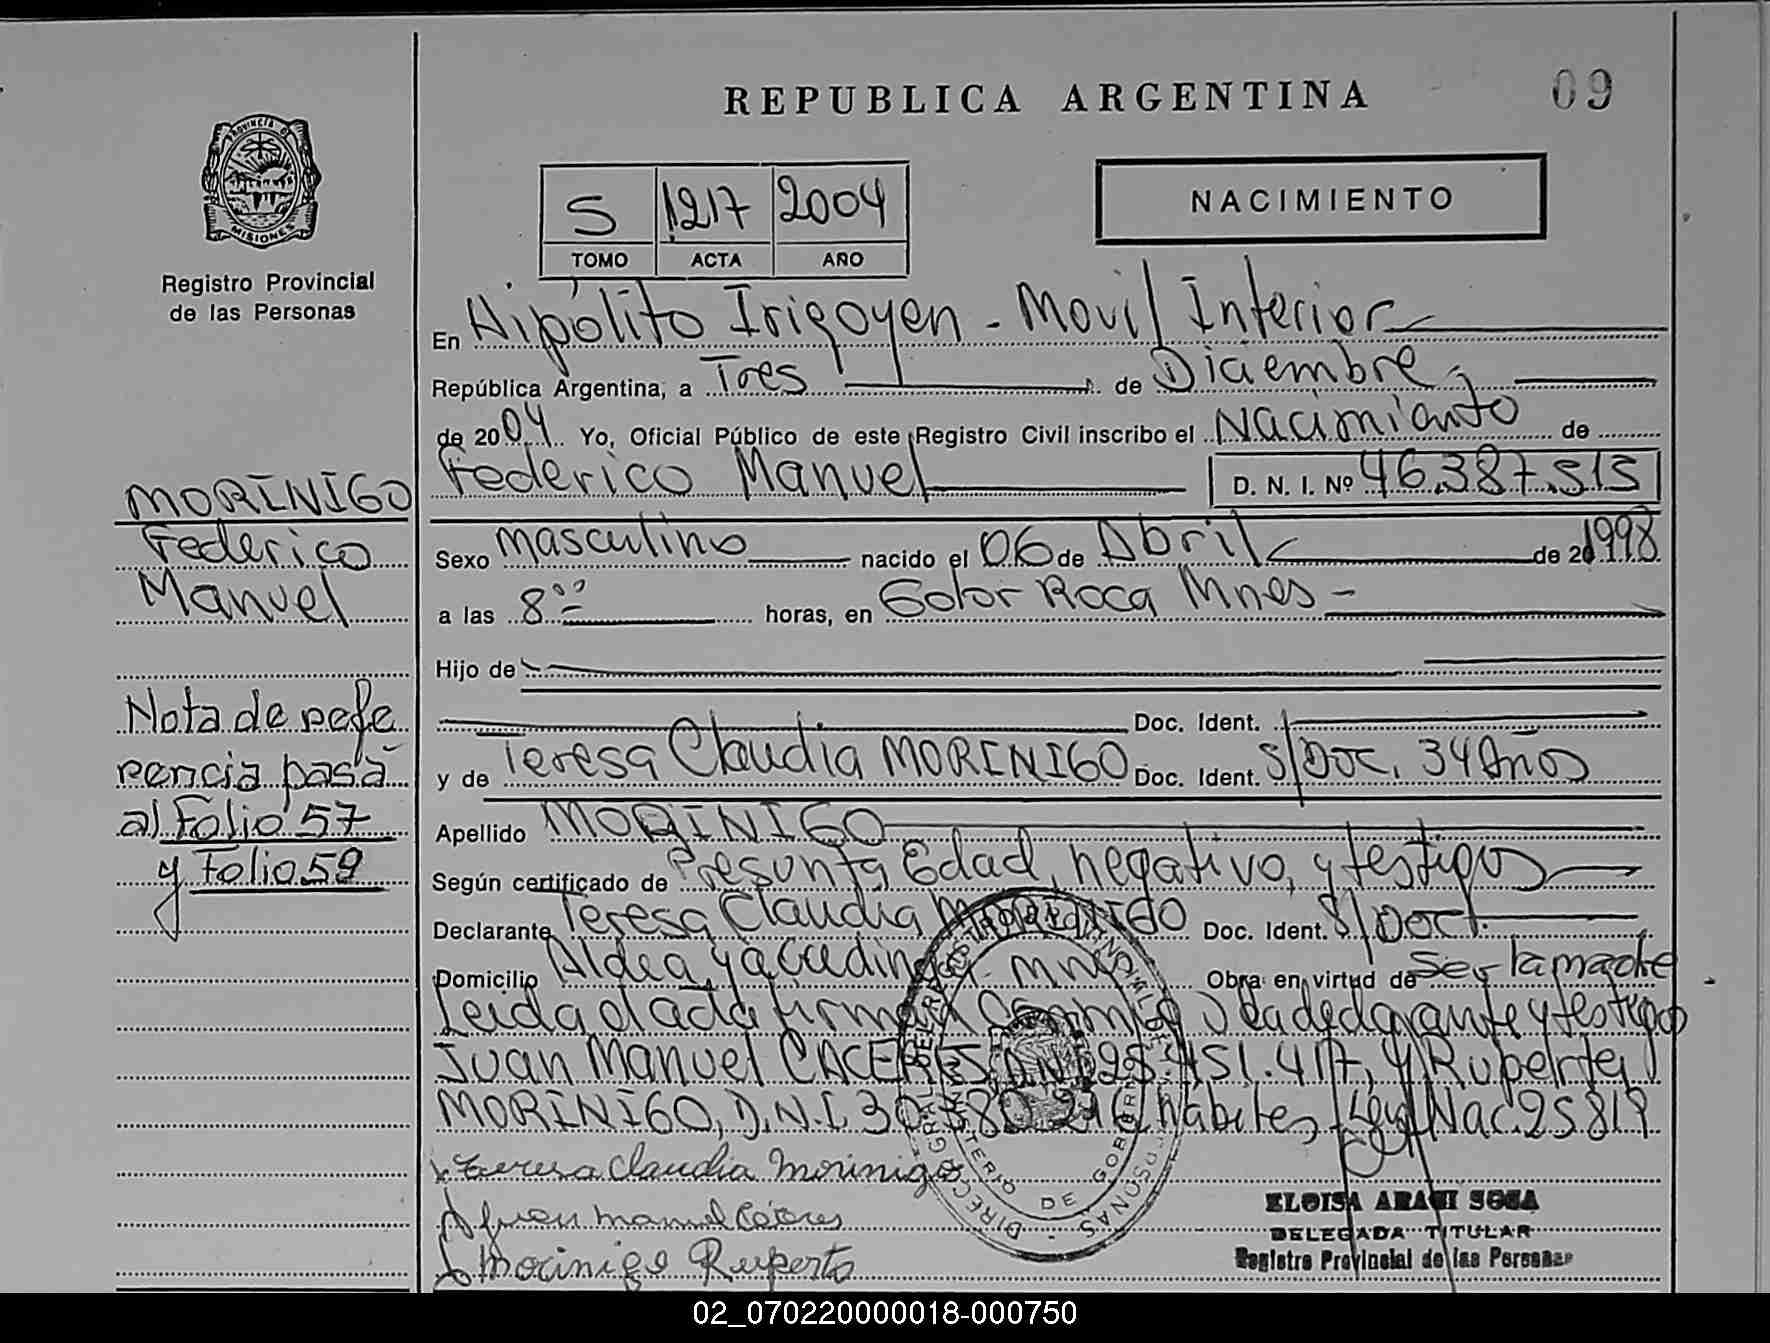 REPUBLICA ARGENTINA
09
PROVINCIA DE
MISIONES
Registro Provincial
de las Personas
S 1217 2004
TOMO ACTA AÑO
NACIMIENTO
En Hipólito Irigoyen - Movil Interior
República Argentina, a Tres de Diciembre
de 2004 Yo, Oficial Público de este Registro Civil inscribo el Nacimiento de
Federico Manuel D. N. I. Nº 46.387.515
Sexo masculino nacido el 06 de Abril de 20 1998
a las 8 horas, en Gobor Roca Mnes -
Hijo de
Doc. Ident.
y de Teresa Claudia MORINIGO Doc. Ident. S/Doc. 34 Años
Apellido MORINIGO
Según certificado de Presunta Edad, negativo, y testigos
Declarante Teresa Claudia MORINIGO Doc. Ident. S/Doc.
Domicilio Aldea Mnes Obra en virtud de ser la madre
Leida el acta firman Conmigo la declarante y testigos
Juan Manuel CACERES, DNI 25.451.417, y Ruperto
MORINIGO, D.N.I. 30. habiles, Ley Nac. 25819
Teresa Claudia Morinigo
Juan Manuel Cáceres
Morinigo Ruperto
DE GOBIERNO
ELOISA ARAGI SOSA
DELEGADA TITULAR
Registro Provincial de las Personas
MORINIGO
Federico
Manuel
Nota de refe
rencia pasa
al Folio 57
y Folio 59
02_070220000018-000750